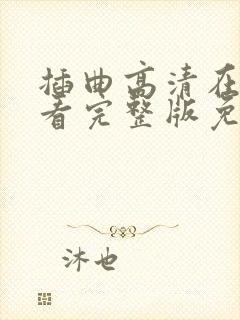 插曲高清在
看完整版免
沐也